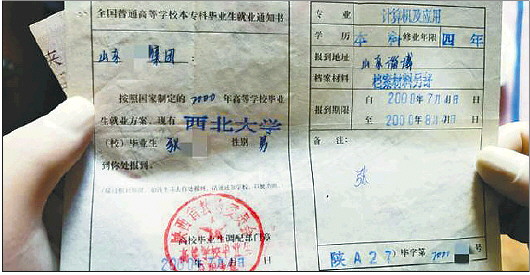 全国普通高等学校本专科毕业生就业通知书
山东 集团：
按照国家制定的2000年高等学校毕业
生就业方案，现有 西北大学
（校）毕业生 张 性别 男
到你处报到。
高校毕业生调配部门章
专业 计算机及应用
学历 本科 修业年限 四年
报到地址 山东淄博
档案材料 档案材料另寄
报到期限 自2000年7月 日
至2000年8月 日
备注：
张
陕A27）毕字第